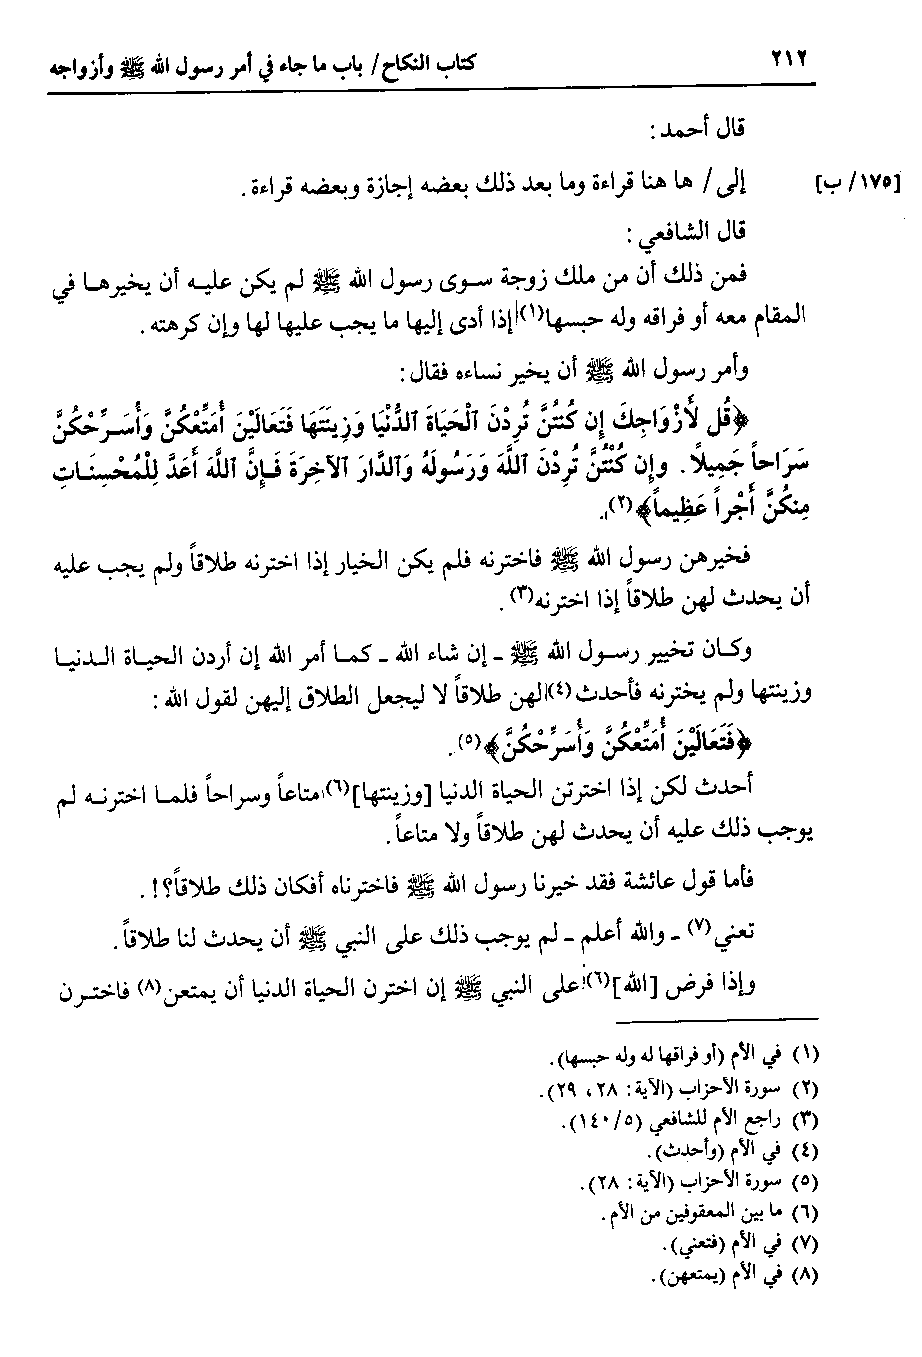 ٢١٢ كتاب النكاح/ باب ما جاء في أمر رسول الله ﷺ وأزواجه
قال أحمد:
[١٧٥/ ب] إلى/ ها هنا قراءة وما بعد ذلك بعضه إجازة وبعضه قراءة.
قال الشافعي:
فمن ذلك أن من ملك زوجة سوى رسول الله ﷺ لم يكن عليه أن يخيرها في
المقام معه أو فراقه وله حبسها(١) إذا أدى إليها ما يجب عليها لها وإن كرهته.
وأمر رسول الله ﷺ أن يخير نساءه فقال:
﴿قُل لأَزْوَاجِكَ إِن كُنتُنَّ تُرِدْنَ ٱلْحَيَاةَ ٱلدُّنْيَا وَزِينَتَهَا فَتَعَالَيْنَ أُمَتِّعْكُنَّ وَأُسَرِّحْكُنَّ
سَرَاحاً جَمِيلاً. وإِن كُنْتُنَّ تُرِدْنَ ٱللَّهَ وَرَسُولَهُ وَٱلدَّارَ ٱلآخِرَةَ فَإِنَّ ٱللَّهَ أَعَدَّ لِلْمُحْسِنَاتِ
مِنكُنَّ أَجْراً عَظِيماً﴾(٢).
فخيرهن رسول الله ﷺ فاخترنه فلم يكن الخيار إذا اخترنه طلاقاً ولم يجب عليه
أن يحدث لهن طلاقاً إذا اخترنه(٣).
وكان تخيير رسول الله ﷺ ـ إن شاء الله ـ كما أمر الله إن أردن الحياة الدنيا
وزينتها ولم يخترنه فأحدث(٤) لهن طلاقاً لا ليجعل الطلاق إليهن لقول الله:
﴿فَتَعَالَيْنَ أُمَتِّعْكُنَّ وَأُسَرِّحْكُنَّ﴾(٥).
أحدث لكن إذا اخترتن الحياة الدنيا [وزينتها](٦) متاعاً وسراحاً فلما اخترنه لم
يوجب ذلك عليه أن يحدث لهن طلاقاً ولا متاعاً.
فأما قول عائشة فقد خيرنا رسول الله ﷺ فاخترناه أفكان ذلك طلاقاً؟!.
تعني(٧) ـ والله أعلم ـ لم يوجب ذلك على النبي ﷺ أن يحدث لنا طلاقاً.
وإذا فرض [الله](٦) على النبي ﷺ إن اخترن الحياة الدنيا أن يمتعن(٨) فاخترن
(١) في الأم (أو فراقها له وله حبسها).
(٢) سورة الأحزاب (الآية: ٢٨، ٢٩).
(٣) راجع الأم للشافعي (٥/١٤٠).
(٤) في الأم (وأحدث).
(٥) سورة الأحزاب (الآية: ٢٨).
(٦) ما بين المعقوفين من الأم.
(٧) في الأم (فتعني).
(٨) في الأم (يمتعهن).